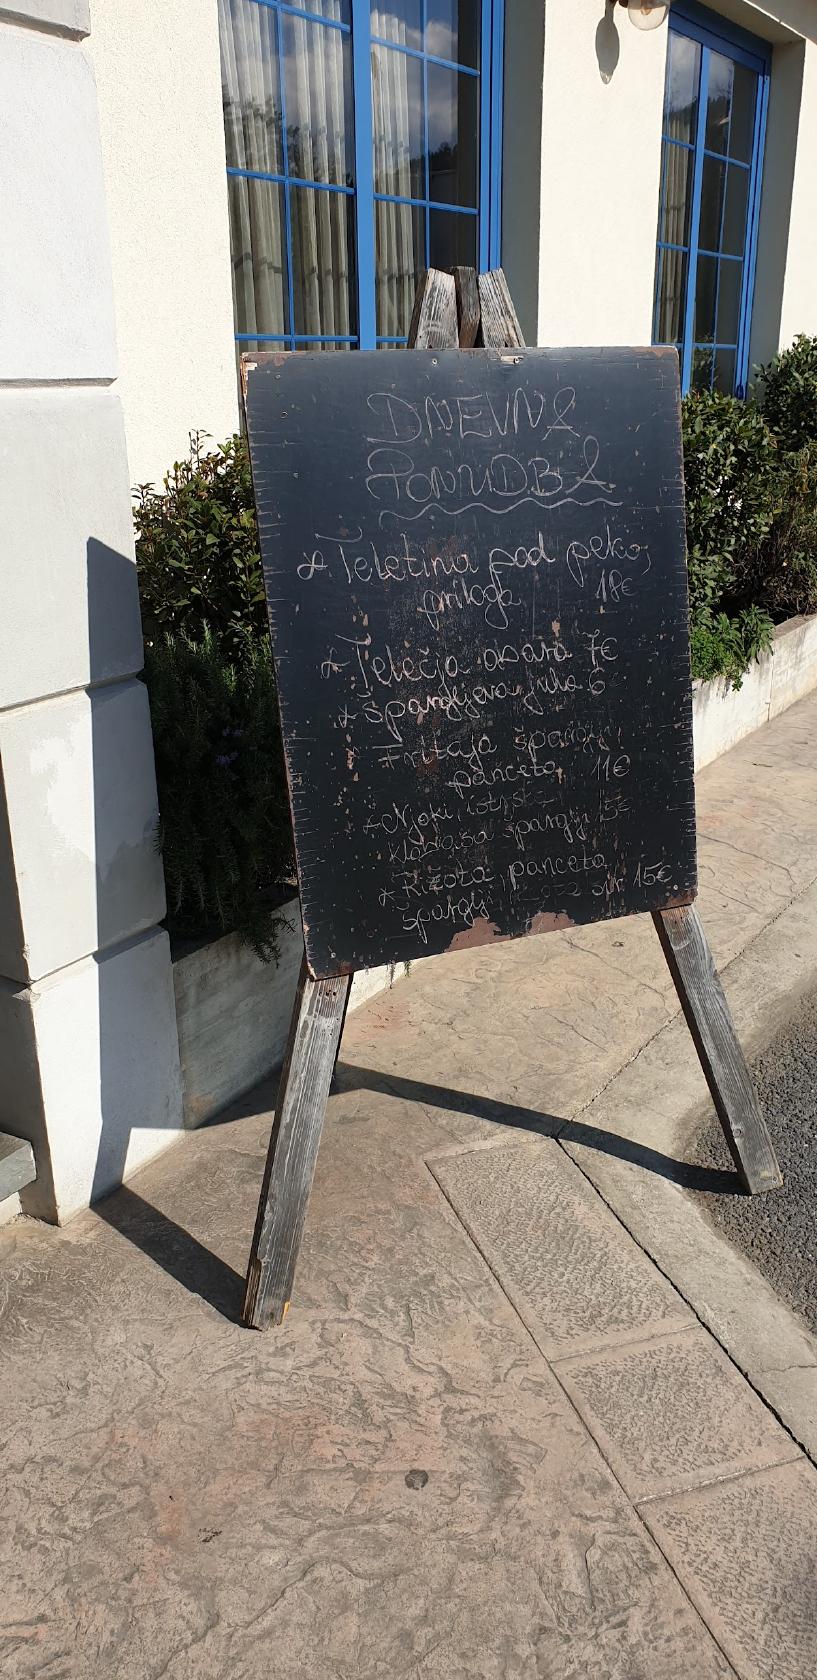 DNEVNA
PONUDBA
* Teletina pod peko,
priloga 18€
* Telečja obara 7€
* Špargljeva juha 6
Fritaja šparglji,
panceta 11€
* Njoki, istrska
klobasa šparglji 15€
* Rižota, panceta
šparglji 15€